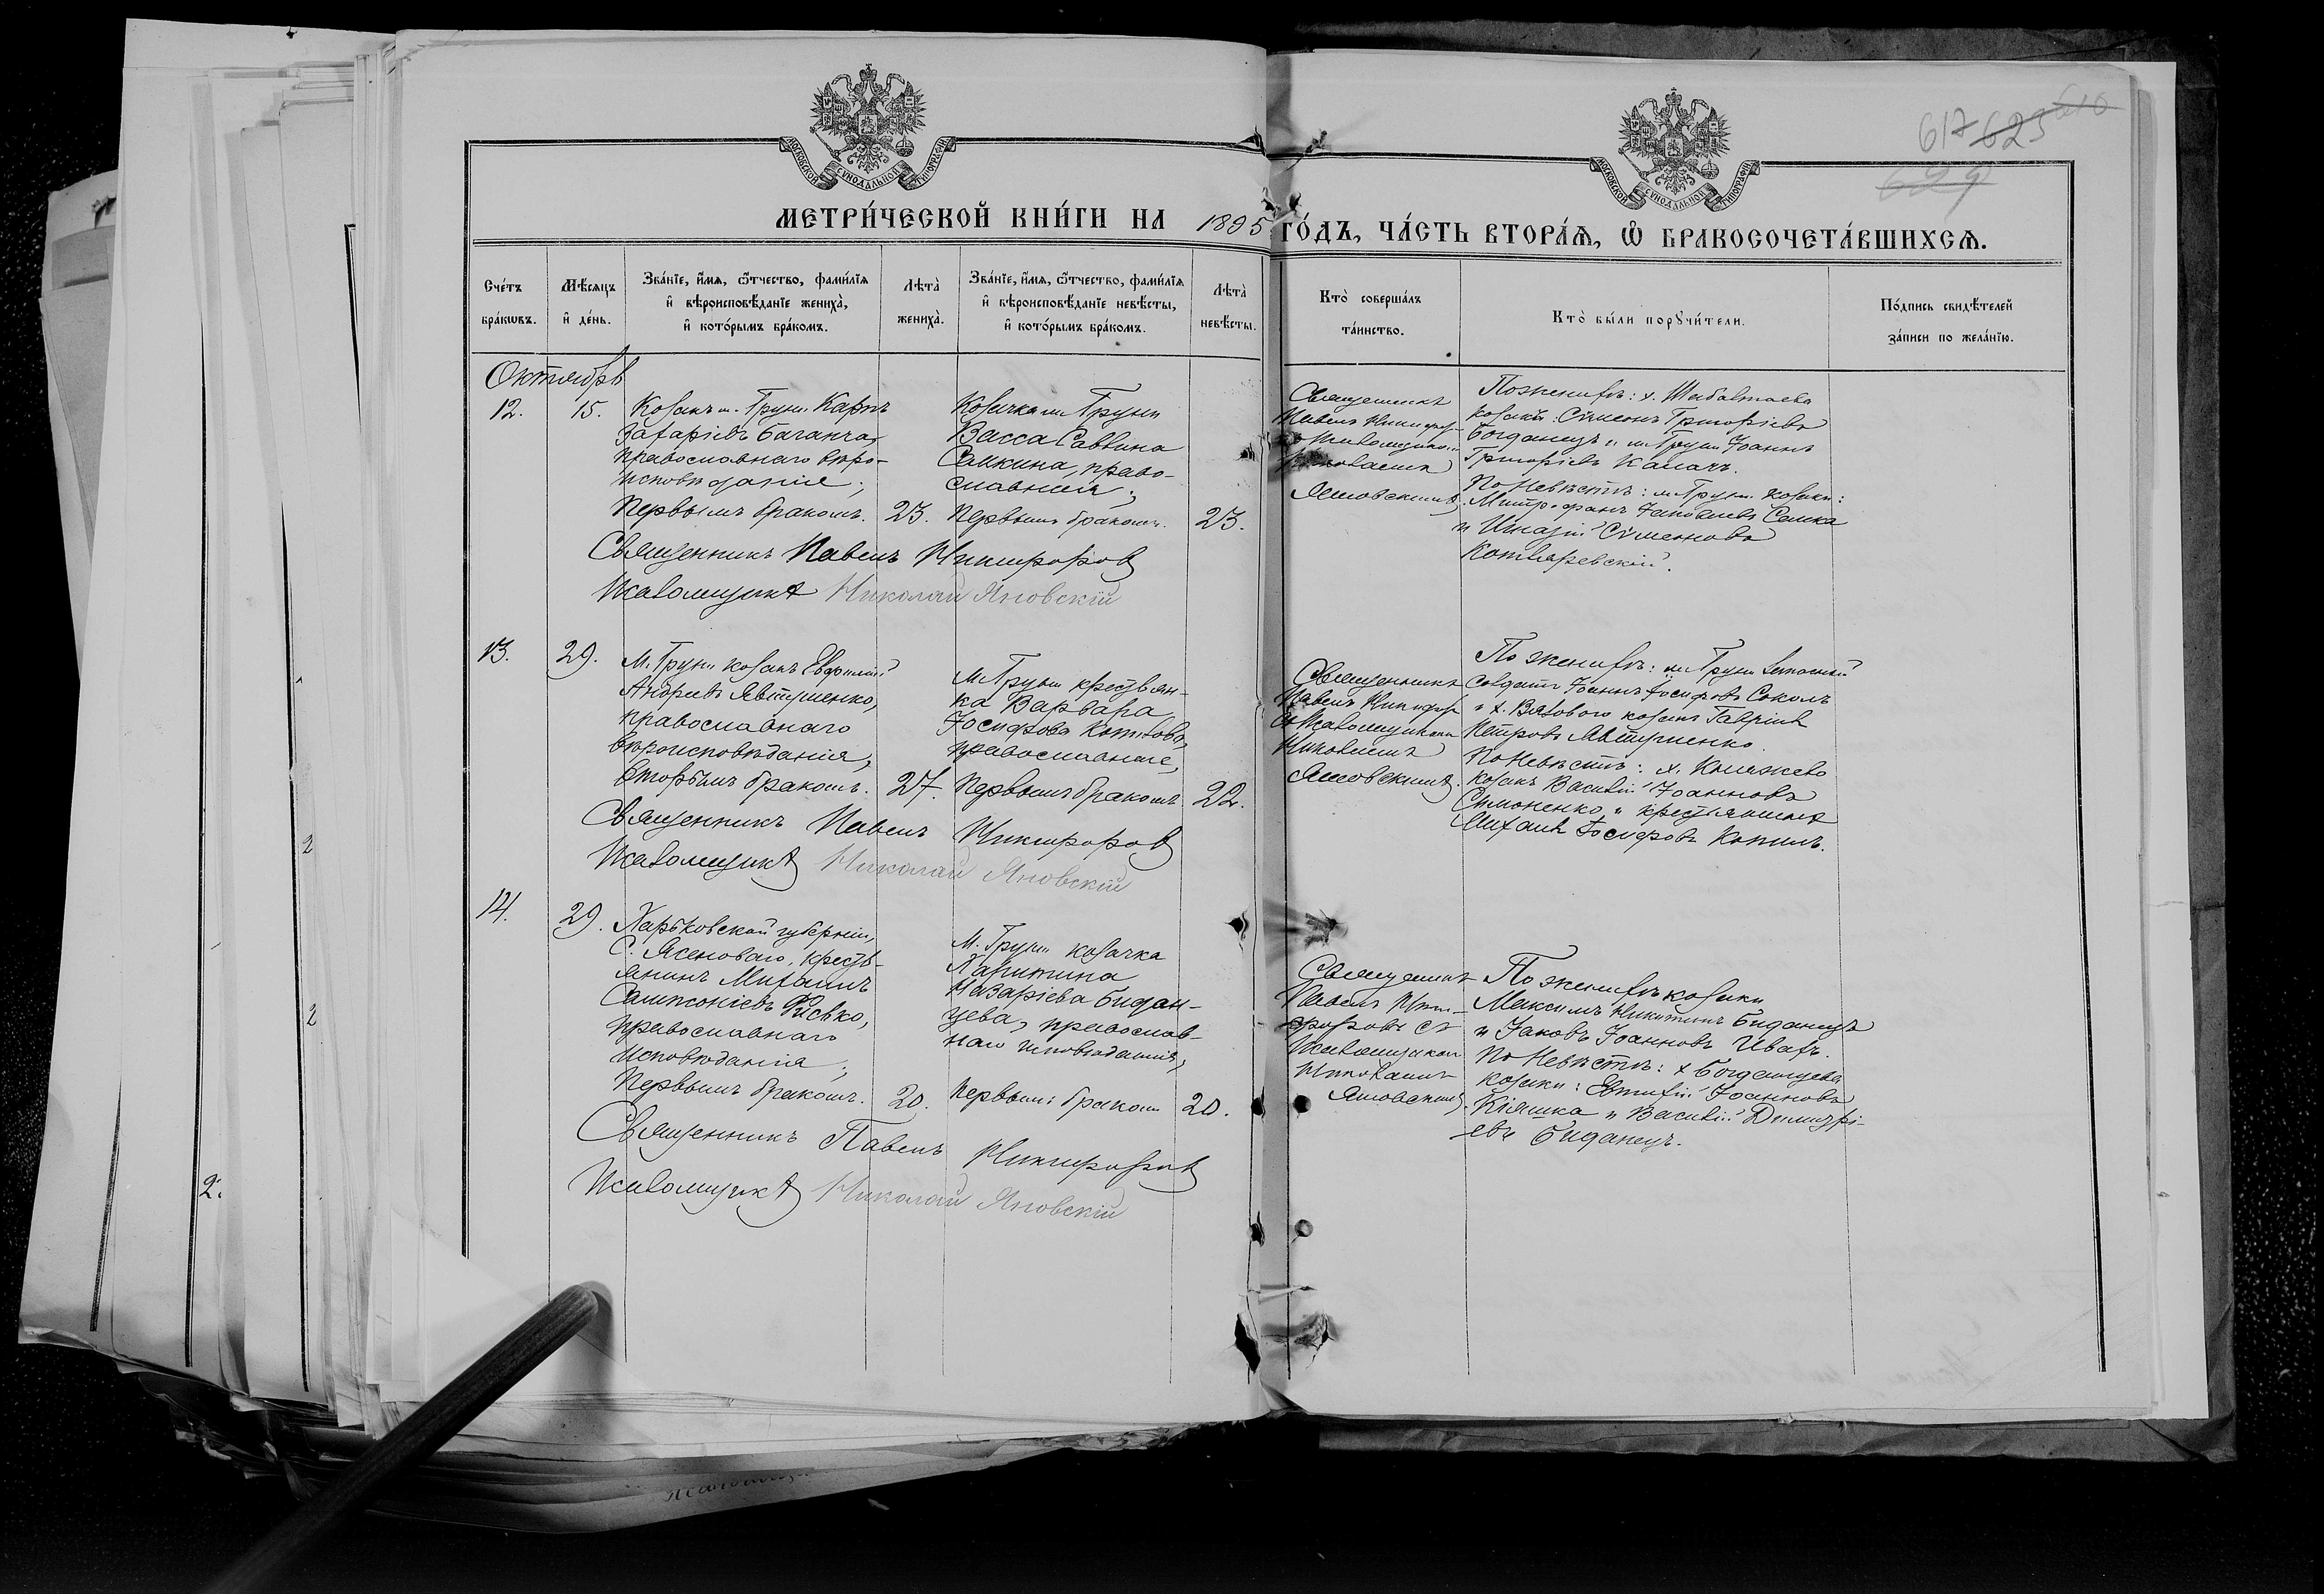 МОСКОВСКОЙ СѴНОДАЛЬНОЙ ТИПОГРАФІИ
МОСКОВСКОЙ СѴНОДАЛЬНОЙ ТИПОГРАФІИ
617 623 610
629
МЕТРИ́ЧЕСКОЙ КНИ́ГИ НА 1895 ГО́ДЪ, ЧА́СТЬ ВТОРА́Ѧ, Ѽ БРАКОСОЧЕТА́ВШИХСѦ.
Сче́тъ
бра́кѡвъ.
Мѣ́сѧцъ
и҆ де́нь.
Зва́нїе, и҆́мѧ, ѻ҆́тчество, фами́лїѧ
и҆ вѣроисповѣ́данїе жениха̀,
и҆ кото́рымъ бра́комъ.
Лѣта̀
жениха̀.
Зва́нїе, и҆́мѧ, ѻ҆́тчество, фами́лїѧ
и҆ вѣроисповѣ́данїе невѣ́сты,
и҆ кото́рымъ бра́комъ.
Лѣта̀
невѣ́сты.
Кто̀ соверша́лъ
та́инство.
Кто̀ бы́ли порꙋчи́тели.
По́дпись свидѣ́телей
за́писи по жела́нїю.
Октябрь
12.
15.
Козакъ м. Груни Карпъ
Захаріевъ Баганча,
православнаго веро-
исповеданія;
Первымъ бракомъ.
23.
Козачка м. Груни
Васса Саввина
Самкина, право-
славная;
Первымъ бракомъ.
23.
Священникъ
Павелъ Никифор-
Яновскимъ.
По женихѣ: х.
козакъ: Сѵмеонъ Григоріевъ
Богданецъ и м. Груни Іоаннъ
Григоріевъ Калачъ.
По Невѣстѣ: м. Груни козаки:
Митрофанъ Самка
и Игнатій Сѵмеоновъ
Котляревскій.
Священникъ Павелъ Никифоров
Псаломщикъ Николай Яновскій
13.
29.
М. Груни козакъ Евфимій
Андреевъ Явтушенко,
православнаго
вѣроисповѣданія,
вторымъ бракомъ.
27.
М. Груни крестьян-
ка Варвара
Іосифова Котова,
православная,
Первымъ бракомъ
22.
Священникъ
Павелъ Никифор
и Псаломщикомъ
Николаемъ
Яновскимъ.
По женихѣ: м. Груни запасной
солдатъ Іоаннъ Іосифовъ Соколъ
и х. козакъ Гавріилъ
Петровъ Явтушенко.
По Невѣстѣ: х.
козакъ Василій Іоанновъ
Симоненко и крестьянинъ
Михаилъ Іосифовъ Котъ.
Священникъ Павелъ Никифоров
Псаломщикъ Николай Яновскій
14.
29.
Харьковской губерніи,
С. Ясеноваго, кресть-
янинъ Михаилъ
Сампсоніевъ Фисько,
православнаго
исповѣданія;
Первымъ бракомъ.
20.
М. Груни козачка
Капитина
Назаріева Бидан-
цева, православ-
наго исповѣданія,
Первымъ бракомъ
20.
Священникъ
Павелъ Ники-
форовъ съ
Псаломщикомъ
Николаемъ
Яновскимъ.
По женихѣ козаки
Максимъ Никитинъ Биданецъ
и Іаковъ Іоанновъ Ивахъ.
По Невѣстѣ: х Богданцева
козаки: Евтихій Іоанновъ
Кіяшка и Василій Димитрі-
евъ Биданецъ.
Священникъ Павелъ Никифоров
Псаломщикъ Николай Яновскій
2
2
2.